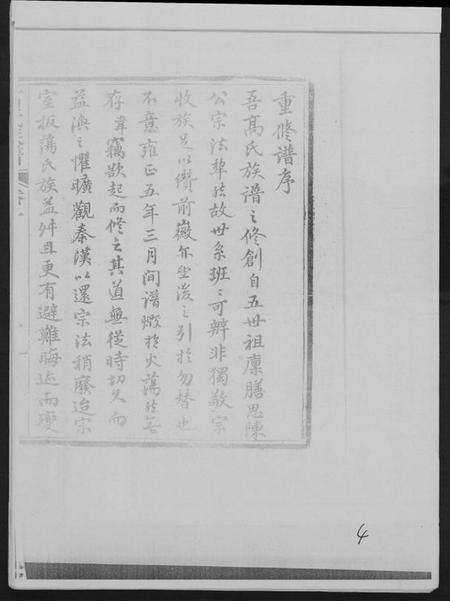 重修谱序
吾髙氏族谱之修創自五世祖廪膳思陳
公宗法犂然故世系班班可辨非獨敦宗
收族足以纘前徽亦坐後之引於勿替也
不意雍正五年三月间谱燬於火蕩然無
存韋竊欲起而修之其道無從時切久而
益湙之懼曠觀秦漢以還宗法稍廢迨宗
室板蕩氏族益艸且更有避難晦迹而变
4